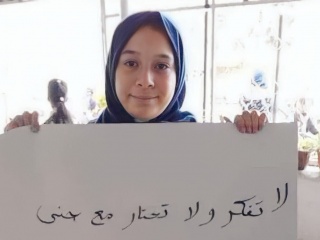 لا تفكر ولا تحتار مع